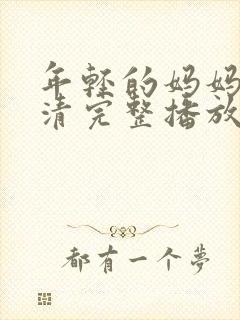 年轻的妈妈
清完整播放
都有一个梦